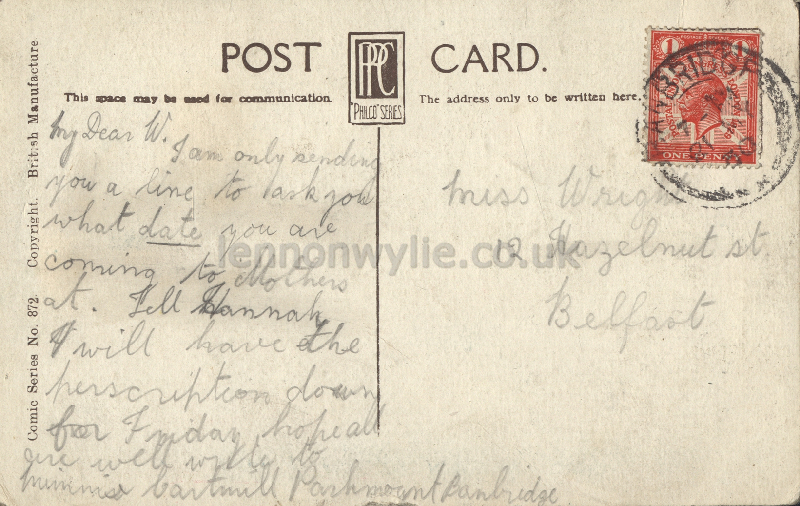 POST CARD.
PPC
"PHILCO" SERIES
This space may be used for communication.
The address only to be written here.
Comic Series No. 872. Copyright. British Manufacture
My Dear W.
I am only sending
you a line to ask you
what date you are
coming to Mothers
at. Tell Hannah
I will have the
perscription down
for Friday, hope all
are well write to
Cartmill Parkmount Banbridge
Miss Wright
12 Hazelnut st.
Belfast
1 1
ONE PENNY
lennonwylie.co.uk